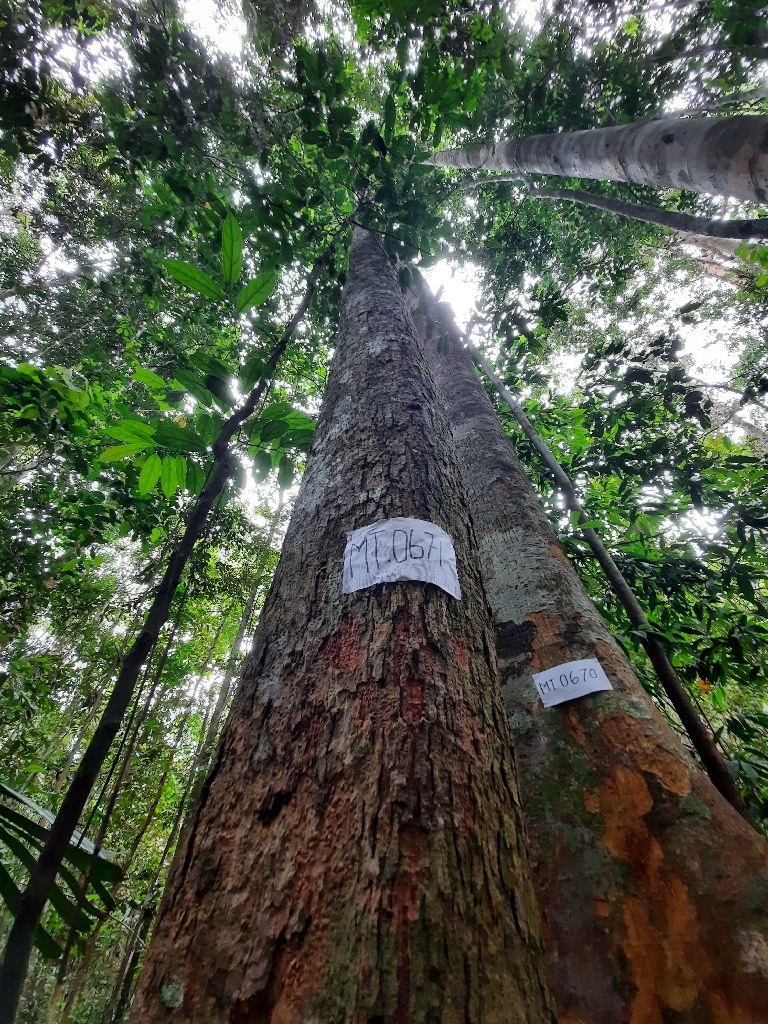 MT.0671
MT.0670